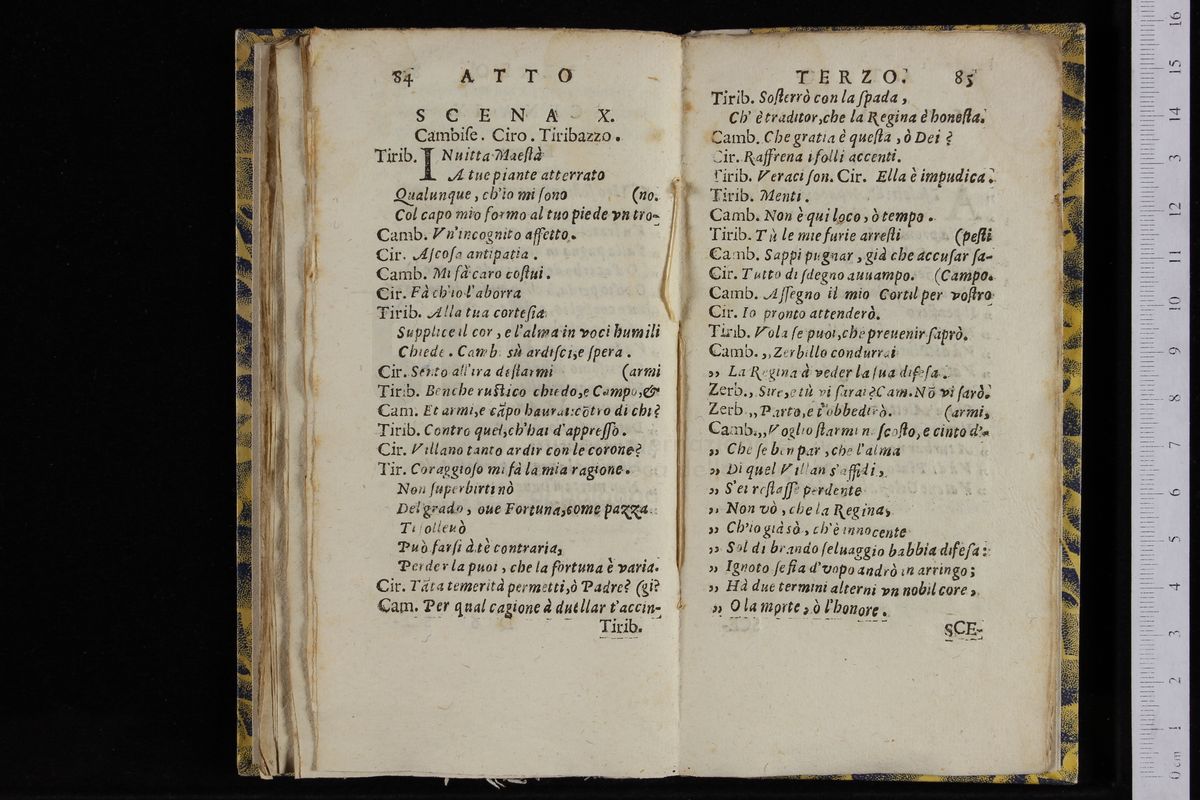 84 ATTO
SCENA X.
Cambise. Ciro. Tiribazzo.
Tirib. INuitta Maestà
A tue piante atterrato
Qualunque, ch'io mi sono (no.
Col capo mio formo al tuo piede vn tro-
Camb. Vn'incognito affetto.
Cir. Ascosa antipatia.
Camb. Mi fà caro costui.
Cir. Fà ch'io l'aborra
Tirib. Alla tua cortesia
Supplice il cor, e l'alma in voci humili
Chiede. Camb. sù ardisci, e spera.
Cir. Sento all'ira destarmi (armi
Tirib. Benche rustico chiedo, e Campo, &
Cam. Et armi, e cãpo haurai: cõtro di chi?
Tirib. Contro quel, ch'hai d'appresso.
Cir. Villano tanto ardir con le corone?
Tir. Coraggioso mi fà la mia ragione.
Non superbirti nò
Del grado, oue Fortuna, come pazza
Ti solleuò
Può farsi à tè contraria,
Perder la puoi, che la fortuna è varia.
Cir. Tãta temerità permetti, ò Padre? (gi?
Cam. Per qual cagione à duellar t'accin-
Tirib.
TERZO. 85
Tirib. Sosterrò con la spada,
Ch' è traditor, che la Regina è honesta.
Camb. Che gratia è questa, ò Dei?
Cir. Raffrena i folli accenti.
Tirib. Veraci son. Cir. Ella è impudica.
Tirib. Menti.
Camb. Non è qui loco, ò tempo.
Tirib. Tù le mie furie arresti (pesti
Camb. Sappi pugnar, già che accusar sa-
Cir. Tutto di sdegno auuampo. (Campo.
Camb. Assegno il mio Cortil per vostro
Cir. Io pronto attenderò.
Tirib. Vola se puoi, che preuenir saprò.
Camb. ,, Zerbillo condurrai
,, La Regina à veder la sua difesa.
Zerb., Sire, e tù vi sarai? Cam. Nõ vi sarò.
Zerb ,, Parto, e t'obbedirò. (armi,
Camb. ,, Voglio starmi nascosto, e cinto d'-
,, Che se ben par, che l'alma
,, Di quel Villan s'affidi,
,, S'ei restasse perdente
,, Non vò, che la Regina,
,, Ch'io già sò, ch'è innocente
,, Sol di brando seluaggio habbia difesa:
,, Ignoto se fia d'vopo andrò in arringo;
,, Hà due termini alterni vn nobil core,
,, O la morte, ò l'honore.
SCE-
0 cm 1 2 3 4 5 6 7 8 9 10 11 12 13 14 15 16